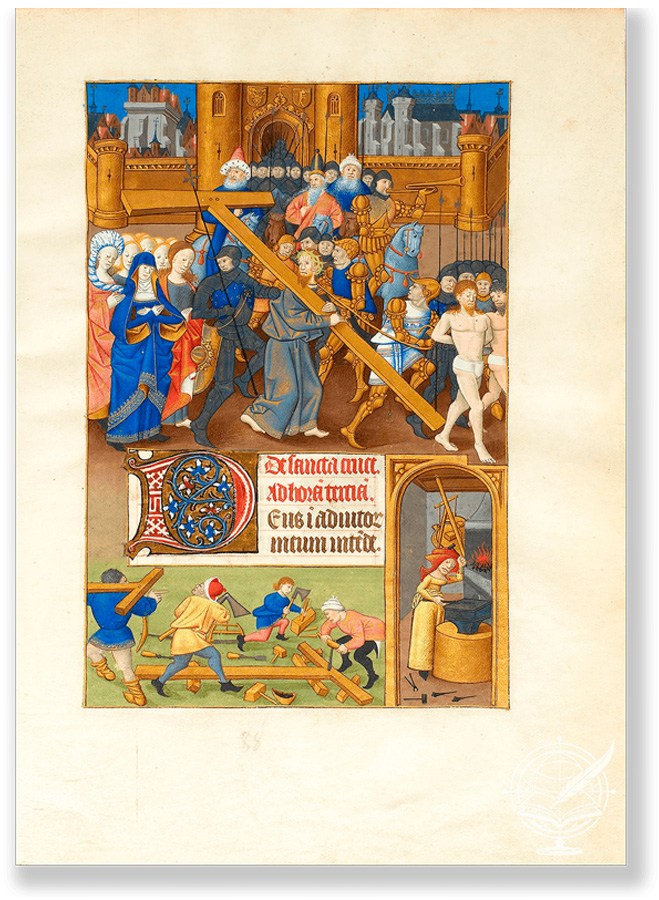 De sancta cruce.
Ad horā terciā.
Deus ī adiutor
meum intēde.
88